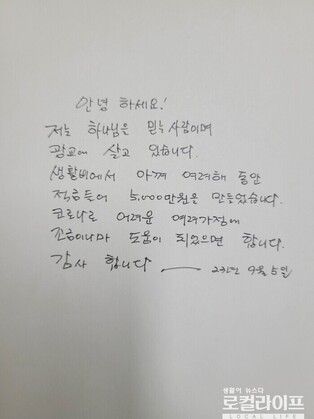 안녕 하세요!
저는 하나님은 믿는 사람이며
광교에 살고 있습니다.
생활비에서 아껴 여러해 동안
적금들어 5,000만원은 만들었습니다.
코로나로 어려운 여러가정에
조금이나마 도움이 되었으면 합니다.
감사 합니다 — 9월 5일
생활이 뉴스다
로컬라이프
LOCAL LIFE